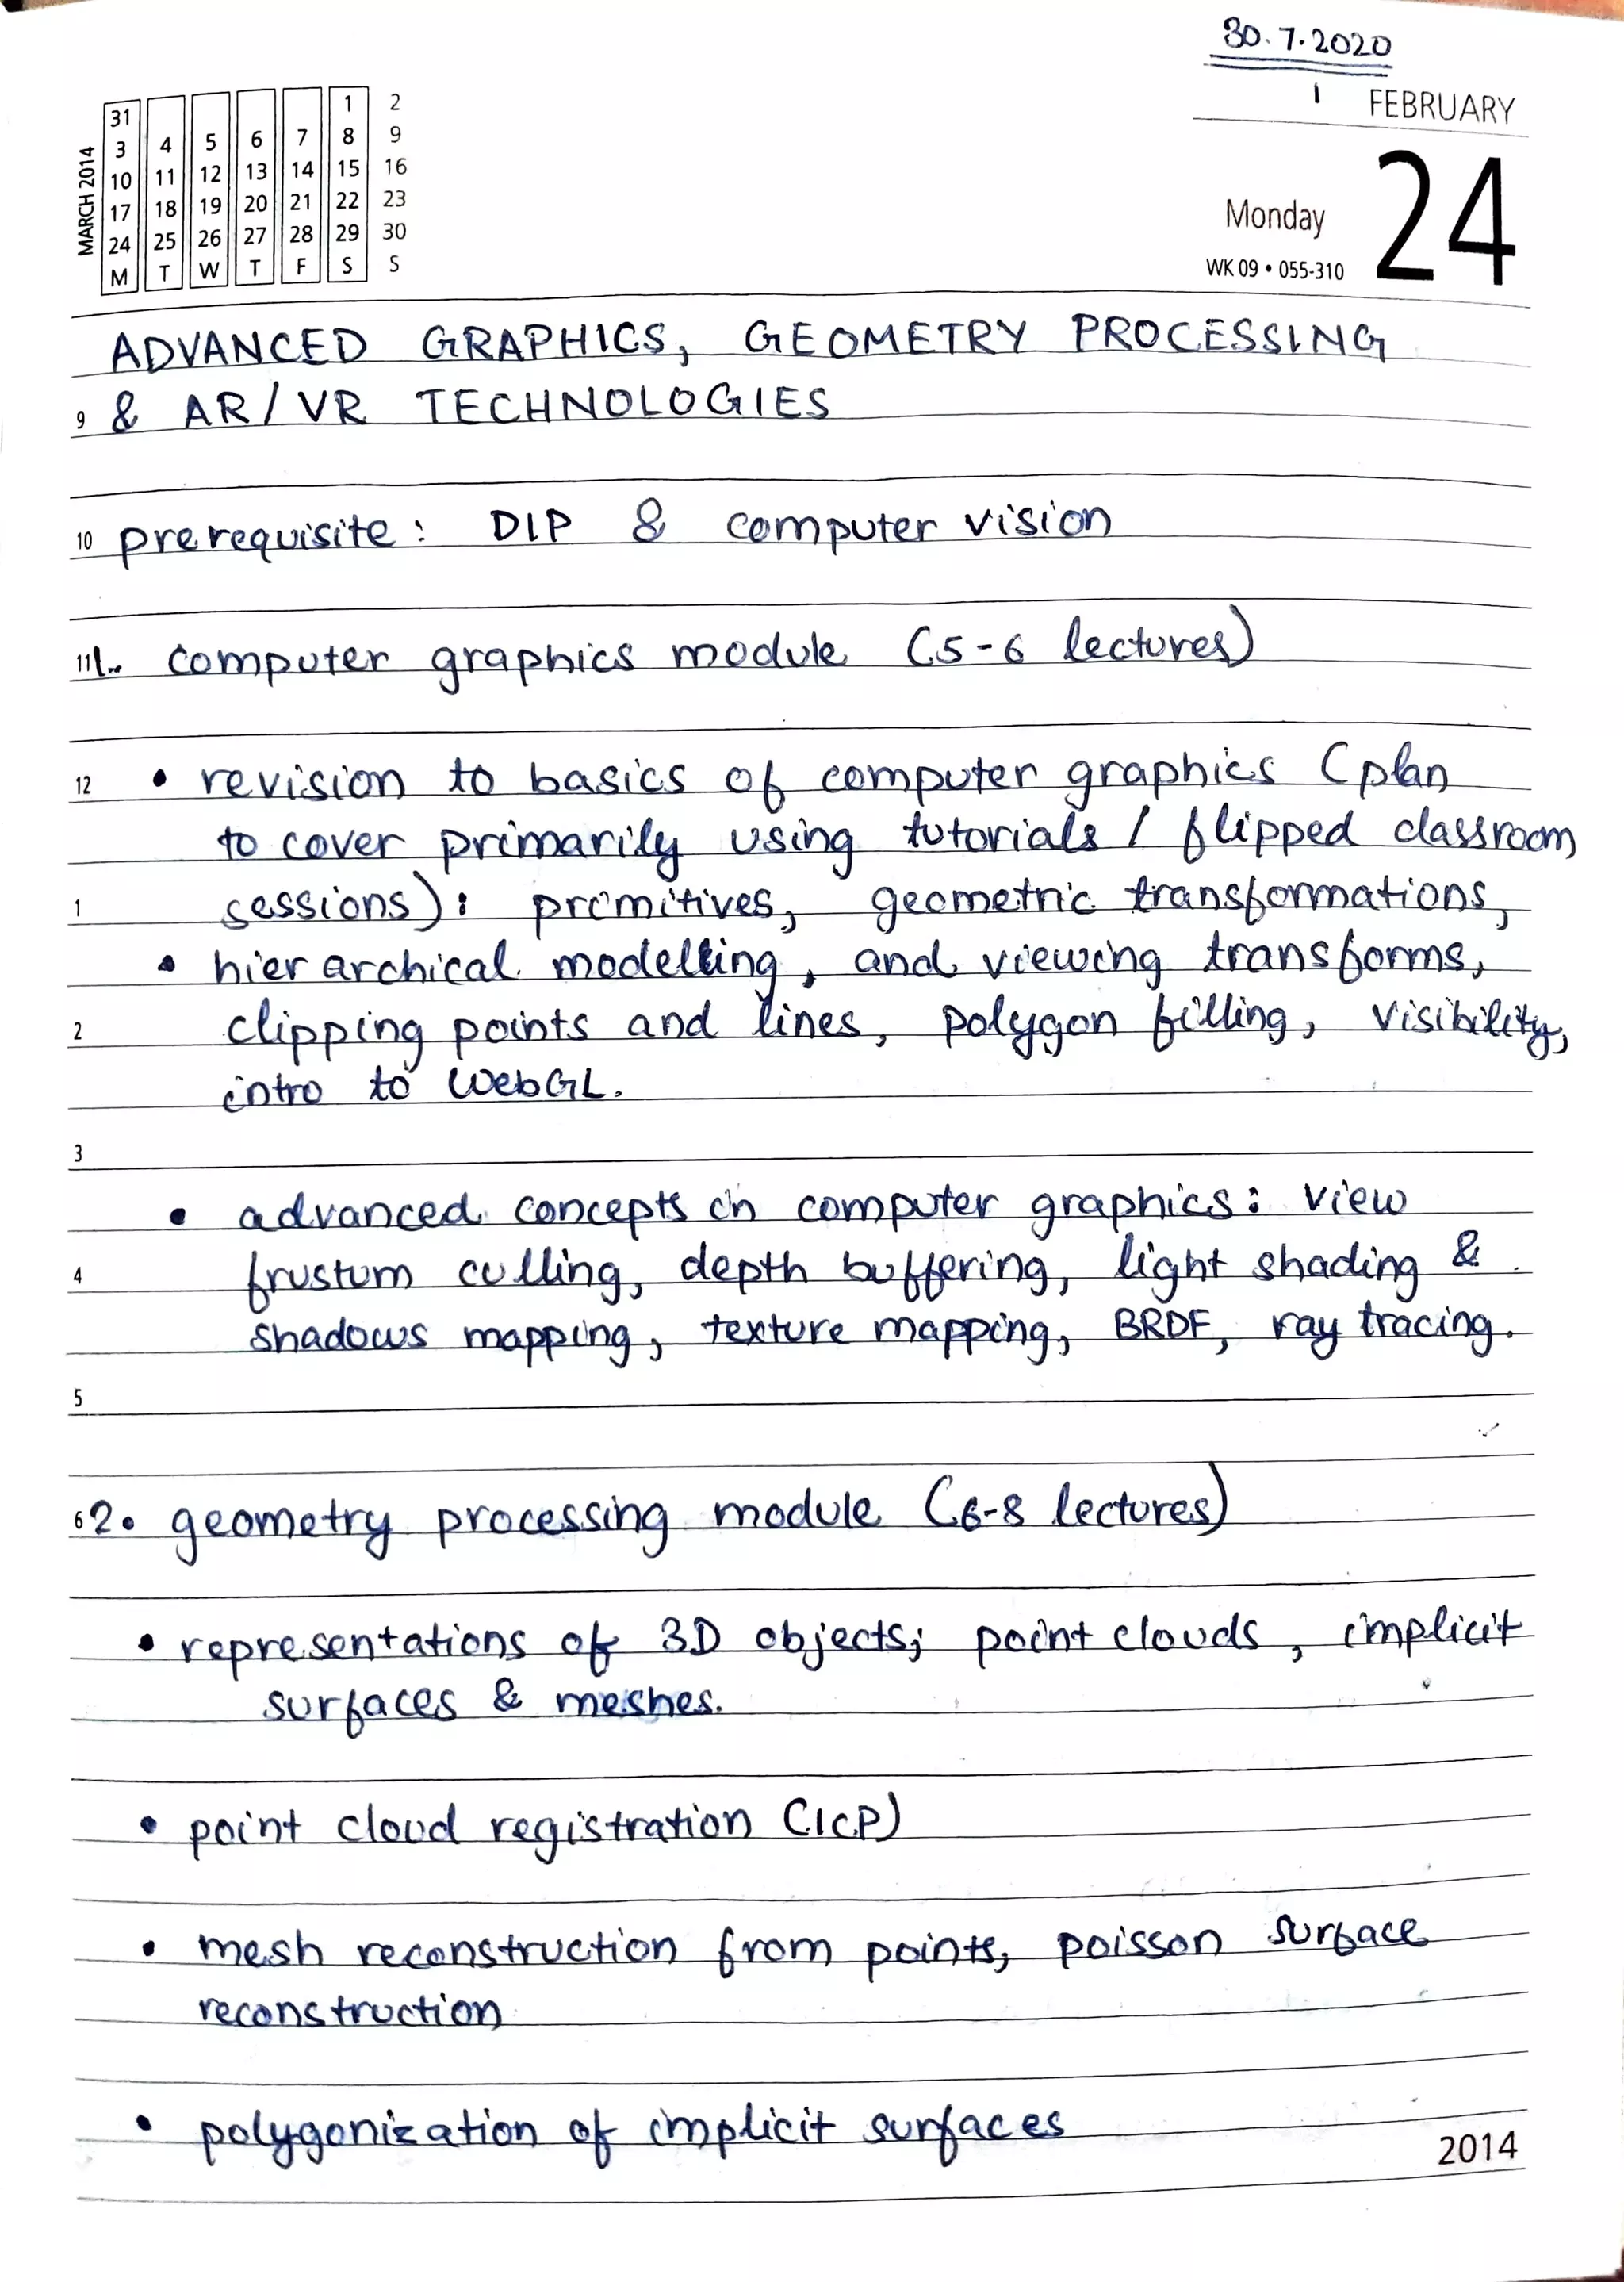 30.7.2020
1 FEBRUARY
MARCH 2014
31 1 2
3 4 5 6 7 8 9
10 11 12 13 14 15 16
17 18 19 20 21 22 23
24 25 26 27 28 29 30
M T W T F S S
Monday 24
WK 09 • 055-310
ADVANCED GRAPHICS, GEOMETRY PROCESSING
9 & AR/VR TECHNOLOGIES
10 prerequisite: DIP & computer vision
11 1. computer graphics module (5-6 lectures)
12 • revision to basics of computer graphics (plan
to cover primarily using tutorials / flipped classroom
1 sessions): primitives, geometric transformations,
• hierarchical modelling, and viewing transforms,
2 clipping points and lines, polygon filling, visibility,
intro to WebGL.
3
• advanced concepts in computer graphics: view
4 frustum culling, depth buffering, light shading &
shadows mapping, texture mapping, BRDF, ray tracing.
5
6 2. geometry processing module (6-8 lectures)
• representations of 3D objects; point clouds, implicit
surfaces & meshes.
• point cloud registration (ICP)
• mesh reconstruction from points, poisson surface
reconstruction
• polygonization of implicit surfaces
2014